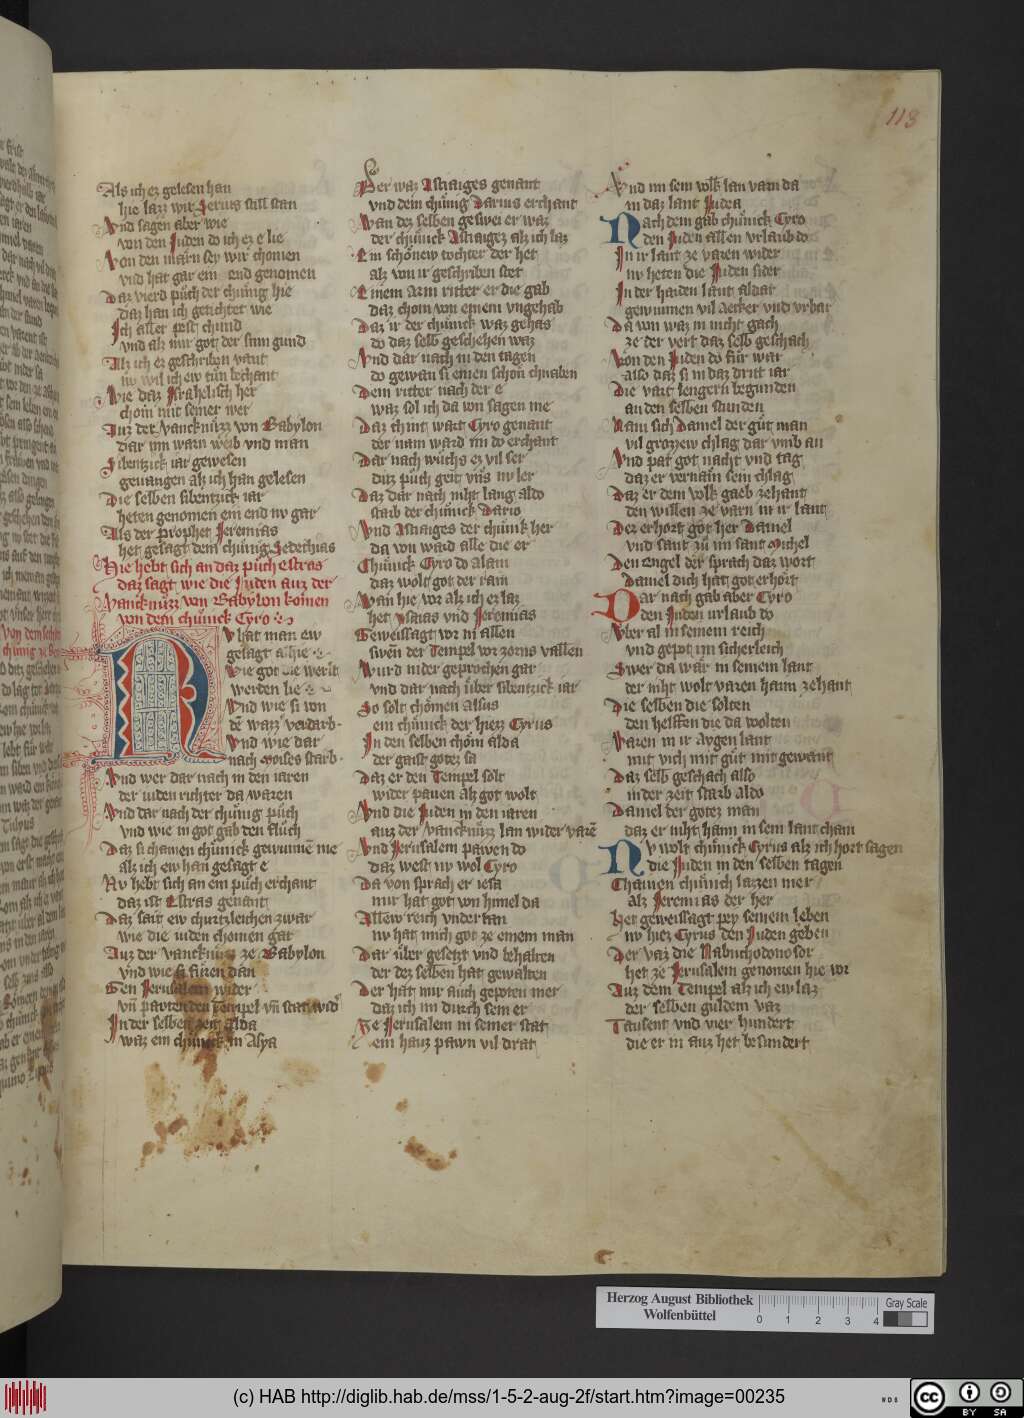 118
Als ich ez gelesen han
hie lazz wir Xerius still stan
Vnd sagen aber wie
von den Juden do ich ez e lie
Von den marn sey wir chomen
vnd hat gar ein end genomen
Daz vierd püch der chünig hie
daz han ich getichtet wie
Ich aller pest chund
vnd alz mir got der sinn gund
Alz ich ez geschriben vant
nv wil ich ew tün bechant
Wie daz Israhelisch her
chom mit seiner wer
Auz der vancknüzz von Babylon
dar inn warn weib vnd man
Sibentzick iar gewesen
geuangen alz ich han gelesen
Die selben sibentzick iar
heten genomen ein end nv gar
Als der prophet Jeremias
het gesagt dem chünig Sedechias
Hie hebt sich an daz püch Esdras
daz sagt wie die Juden auz der
Vancknüzz von Babylon komen
von dem chünick Cyro
Nv hat man ew
gesagt alhie
Wie got die werlt
werden lie
Vnd wie si von
dē wazz verdarb
Vnd wie dar
nach Moises starb
Vnd wer dar nach in den iaren
der iuden richter da waren
Vnd dar nach der chünig püch
vnd wie in got gab den flüch
Daz si chainen chünick gewunnē nie
alz ich ew han gesagt e
Nv hebt sich an ein püch erchant
daz ist Esdras genant
Daz sait ew churtzleichen zwar
wie die iuden chomen gar
Auz der vancknüzz ze Babylon
vnd wie si füren dan
Gen Jerusalem wider
vn̄ pawten den Tempel vn̄ stat wid
In der selben zeit alda
waz ein chünick in Asya
Der waz Astiaiges genant
vnd dem chünig Darius erchant
Wan dez selben geswei er waz
der chünick Astiaigez alz ich laz
Ein schönew tochter der het
alz von ir geschriben stet
Einem arm ritter er die gab
daz chom von einem vngehab
Daz ir der chünick waz gehas
do daz selb geschehen waz
Vnd dar nach in den tagen
do gewan si einen schön chnaben
Dem ritter nach der e
waz sol ich da von sagen me
Daz chint wart Cyro genant
der nam ward im do erchant
Dar nach wuchs ez vil ser
ditz püch geit vns nv ler
Daz dar nach niht lang aldo
starb der chünick Dario
Vnd Astiaiges der chünk her
da von ward alle die er
Chünick Cyro do Alain
daz wolt got der rain
Wan hie vor alz ich ez laz
het ysaias vnd Jeremias
Geweissagt vor in allen
swen der Tempel vor zorns vallen
Wurd nider geprochen gar
vnd dar nach über sibentzick iar
So solt chömen Alsus
ein chünick der hiezz Cyrus
In den selben chom alda
der gaist gotez sa
Daz er den Tempel solt
wider pauen alz got wolt
Vnd die Juden in den iaren
auz der vancknüzz lan wider varē
Vnd Jerusalem pawen do
daz west nv wol Cyro
Da von sprach er iesa
mir hat got von himel da
Allew reich vndertan
nv hat mich got ze einem man
Dar über gesetzt vnd behalten
der dez selben hat gewalten
Der hat mir auch gepoten mer
daz ich im durch sein er
Ze Jerusalem in seiner stat
ein hauz pawn vil drat
Vnd im sein volk lan varn da
in daz lant Judea
Nach dem gab chünick Cyro
den Juden allen vrlaub do
In ir lant ze varen wider
nv heten die Juden sider
In der haiden lant aldar
gewunnen vil aecker vnd vrbar
Da von waz in nicht gach
ze der vert daz selb geschach
Von den Juden do für war
also daz si in daz dritt iar
Die vart lengern begunden
an den selben stunden
Nam sich Daniel der güt man
vil grozzew chlag dar vmb an
Vnd pat got nacht vnd tag
daz er vernäm sein chlag
Daz er dem volk gaeb zehant
den willen ze varn in ir lant
Der erhort got her Daniel
vnd sant zü im sant Michel
Den Engel der sprach daz wort
Daniel dich hat got erhört
Dar nach gab aber Cyro
den Juden urlaub do
Vber al in seinem reich
vnd gepot im sicherleich
Swer da wär in seinem lant
der niht wolt varen haim zehant
Die selben die solten
den helffen die da wolten
Varen in ir aygen lant
mit vich mit güt mit gewant
Daz selb geschach also
in der zeit starb aldo
Daniel der gotez man
daz er niht haim in sein lant cham
Nv wolt chünick Cyrus alz ich hort sagen
die Juden in den selben tagen
Chainen chünich lazzen mer
alz Jeremias der her
Het geweissagt pey seinem leben
nv hiez Cyrus den Juden geben
Der vaz die Nabuchodonosor
het ze Jerusalem genomen hie vor
Auz dem Tempel alz ich ew laz
der selben guldein vaz
Tausent vnd vier hundert
die er in auz het besundert
Herzog August Bibliothek
Wolfenbüttel
0 1 2 3 4
Gray Scale
(c) HAB http://diglib.hab.de/mss/1-5-2-aug-2f/start.htm?image=00235
WDB
cc BY SA